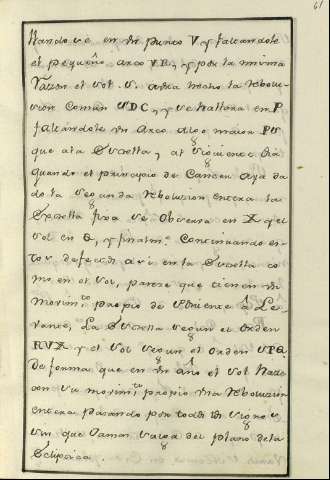 61
llandose en su punto V, y faltandole
el pequeño arco VR, y por la misma
razon el Sol S. avra hecho la revolu-
cion comun VDC, y se hallara en P
faltandole un arco algo maior PV
que ala Estrella, al siguiente dia
quando el principio de Cancer aya da
do la segunda revolucion entera la
Estrella fixa se observa en X y el
Sol en Q, y finalm.te Continuando es-
tos defectos asi en la Estrella co
mo en el Sol, parece que tienen un
movim.to propio de Poniente á Le-
vante, La Estrella segun el orden
RVX y el Sol segun el orden VPQ
De forma que en un año el Sol haze
con su movim.to propio una revolucion
entera pasando por todos los signos
sin que Jamas salga del plano dela
Ecliptica.